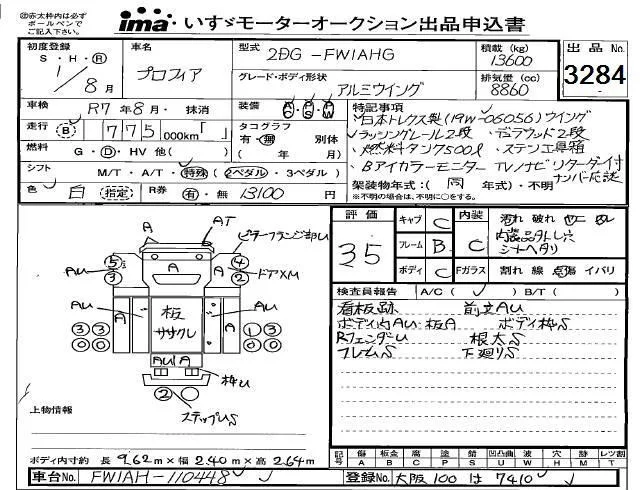 ㊟赤太枠内は必ず
ボールペンで
ご記入下さい。
ima・いすゞモーターオークション出品申込書
初度登録 S・H・Ⓡ 1/8月
車名 プロフィア
型式 2DG-FW1AHG
積載(kg) 13600
出品No. 3284
グレード・ボディ形状 アルミウイング
排気量(cc) 8860
車検 R7年8月・抹消
装備 AC PS PW
特記事項
・日本トレクス製(19W-06056)ウイング
走行 (B) 775 000km「 」
タコグラフ 有・無 別体 ( 年 月)
・ラッシングレール2段
燃料 G・Ⓓ・HV 他( )
・燃料タンク500ℓ ・ステン工具箱
シフト M/T・A/T・特殊 (2ペダル・3ペダル)
・Bアイカラーモニター TVナビ リターダー付
色 白 (指定) R券 有・無 13100円
架装物年式:( 同 年式)・不明
※不明の場合は、不明に○をする。
評価 3.5
キャブ C 内装 C 汚れ 破れ
フレーム B 内装品外し穴
ボディ C シートヘタリ
Fガラス 割れ 線 点傷 イバリ
検査員報告 A/C( ✓ ) B/T( )
看板跡 前文AU
ボディ内AU 板A ボディ枠S
RフェンダーU 根太S
フレームS 下廻りS
AT
A
A
A
ドアXM
AU
AU
AU
A
A
板
ササクレ
AU A
枠U
ステップS
5 3 4 2
3 3 1 3
2
上物情報
ボディ内寸約 長 9.62m×幅 2.40m×高 2.64m
記号 傷A 板金B 腐C 塗P 錆S 凹凸曲U 波W 穴H 無M レツ割T
車台No. FW1AH-110448
登録No. 大阪 100 は 7410